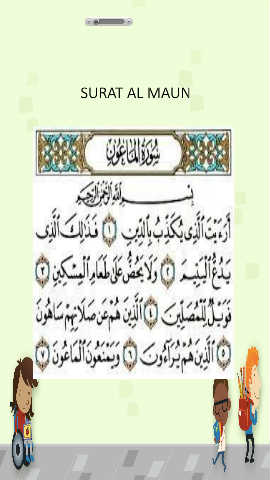 SURAT AL MAUN
سُورَةُ الْمَاعُونِ
بِسْمِ اللَّهِ الرَّحْمَٰنِ الرَّحِيمِ
أَرَءَيْتَ الَّذِي يُكَذِّبُ بِالدِّينِ ١ فَذَٰلِكَ الَّذِي
يَدُعُّ الْيَتِيمَ ٢ وَلَا يَحُضُّ عَلَىٰ طَعَامِ الْمِسْكِينِ ٣
فَوَيْلٌ لِّلْمُصَلِّينَ ٤ الَّذِينَ هُمْ عَن صَلَاتِهِمْ سَاهُونَ
٥ الَّذِينَ هُمْ يُرَاءُونَ ٦ وَيَمْنَعُونَ الْمَاعُونَ ٧